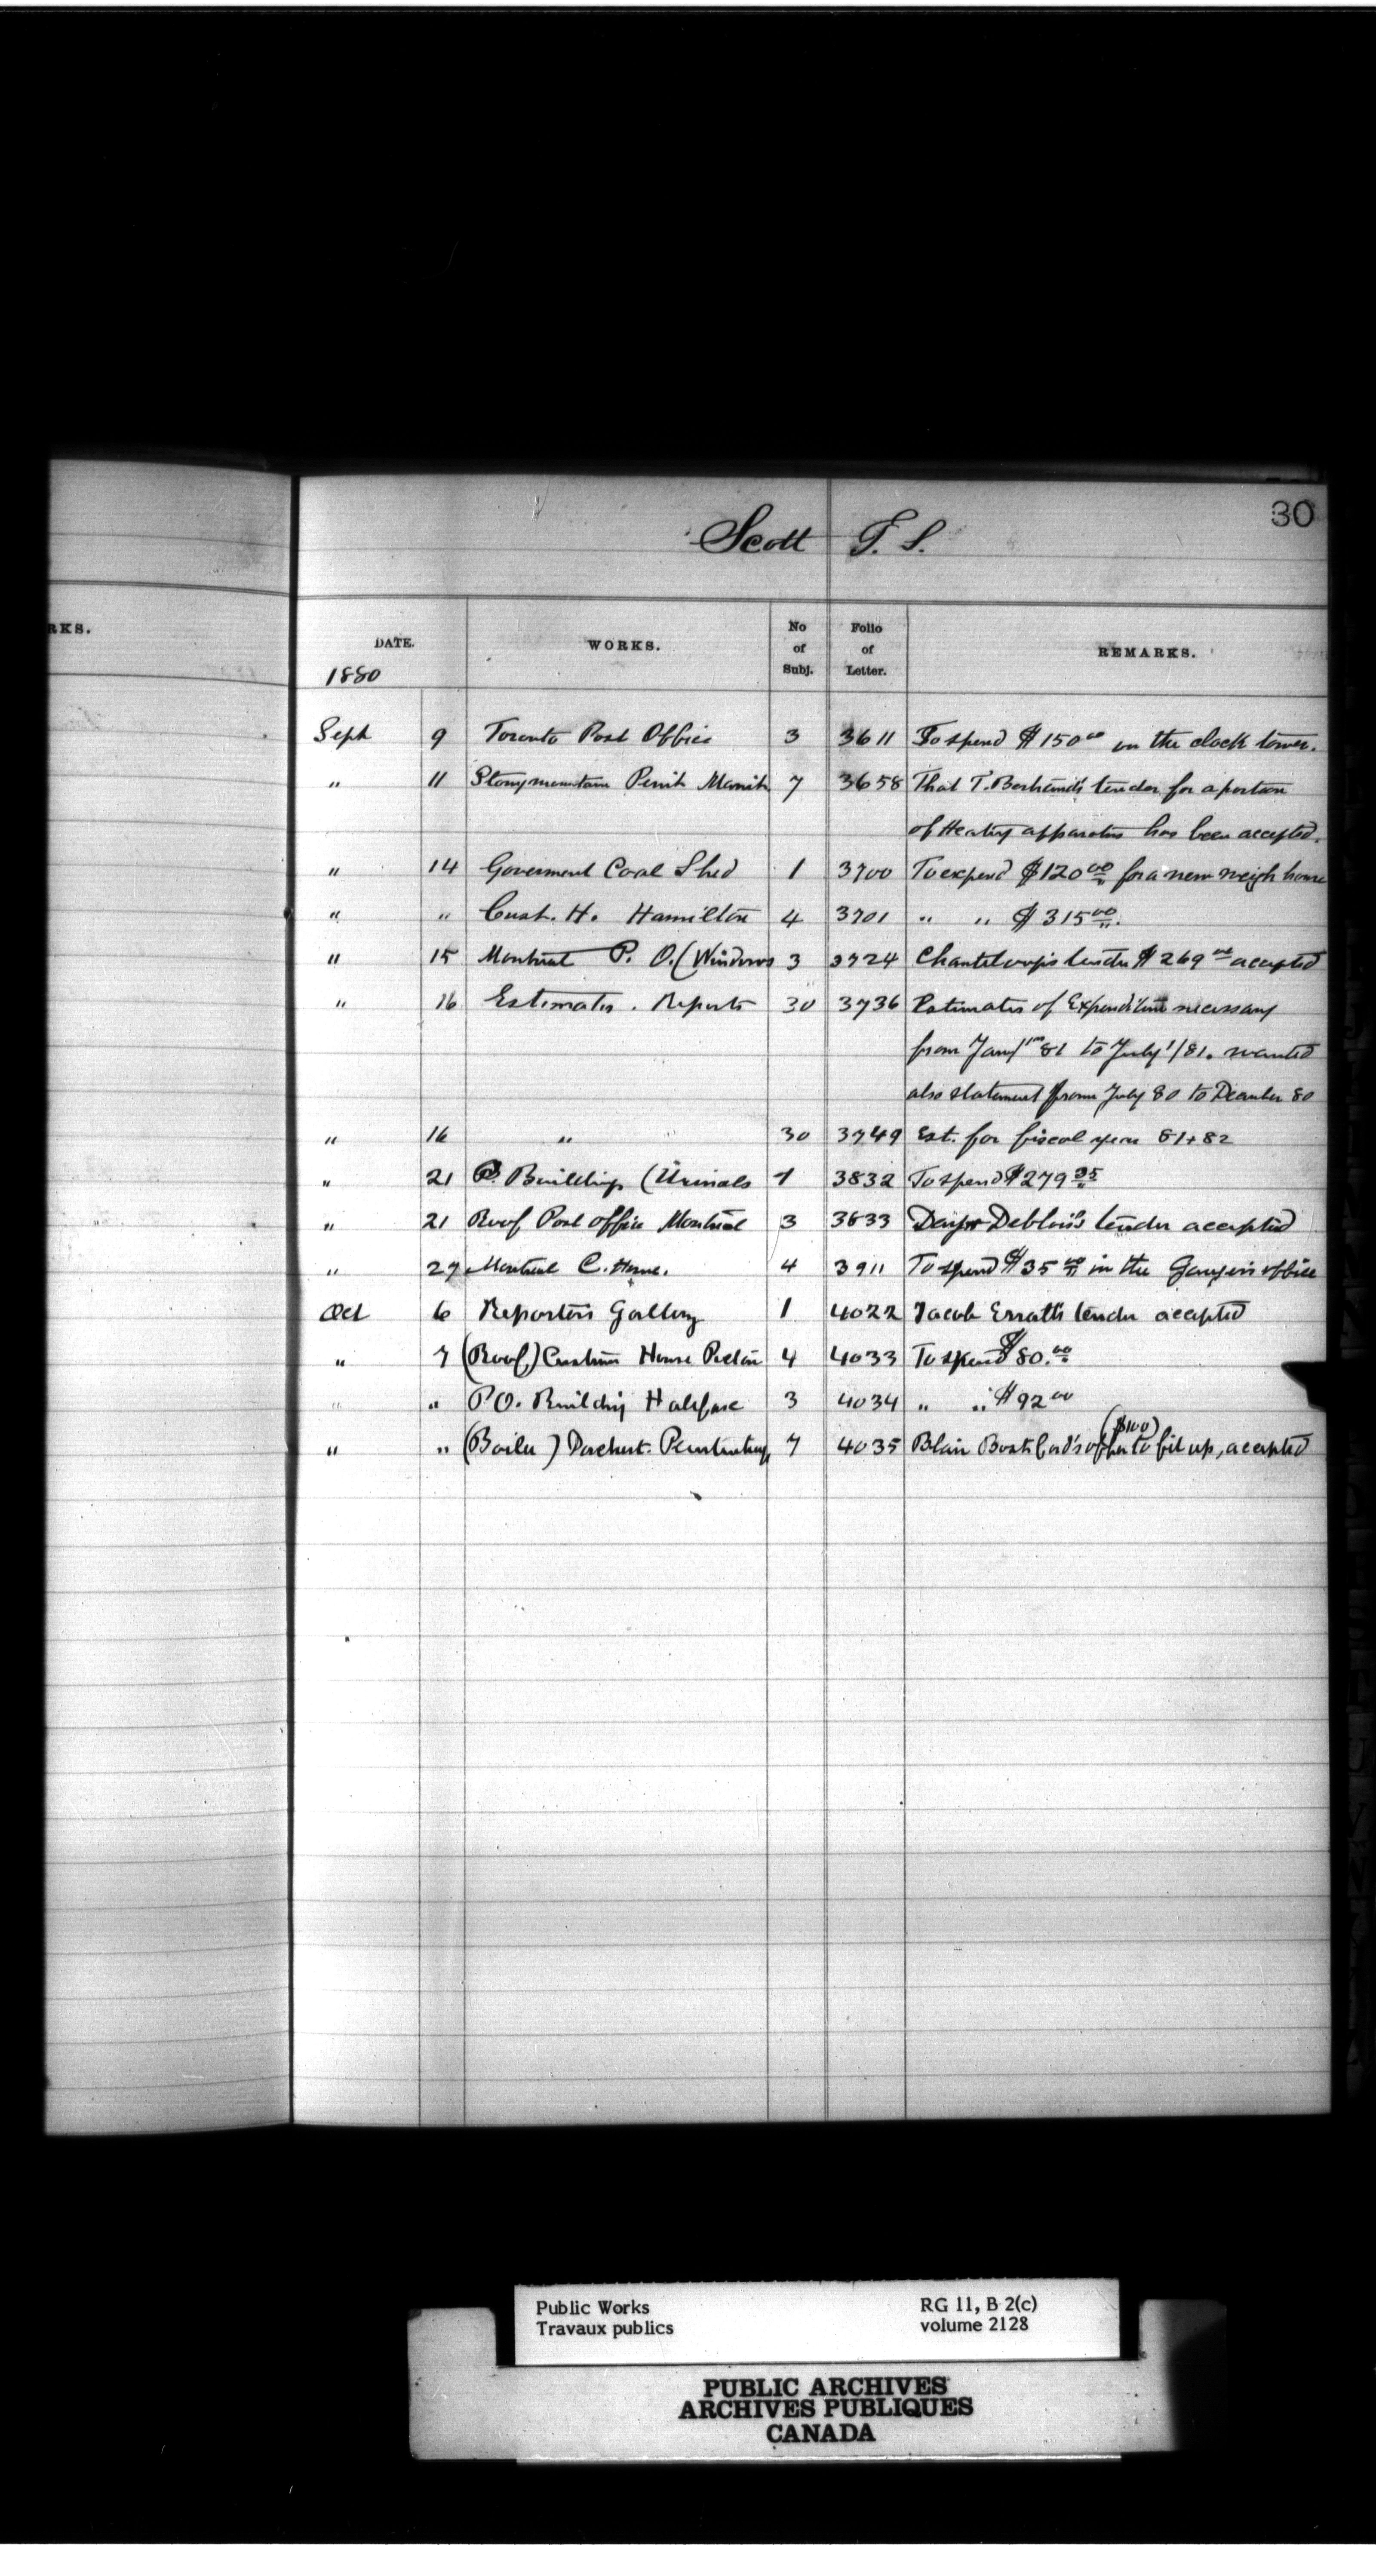 30
Scott T. S.
RKS.
DATE. WORKS. No of Subj. Folio of Letter. REMARKS.
1880
Sept 9 Toronto Post Office 3 3611 To spend $150 00 on the clock tower.
" 11 Stonymountain Penit Manit. 7 3658 That T. Bertrand's tender for a portion
of Heating apparatus has been accepted.
" 14 Goverment Coal Shed 1 3700 To expend $120 00 for a new weigh house
" " Cust. H. Hamilton 4 3701 " " $315 00.
" 15 Montreal P. O. (Windows 3 3724 Chanteloup's tender $269 00 accepted
" 16 Estimates. Reports 30 3736 Estimates of Expenditure necessary
from Jany 1 81 to July 1/81. wanted
also statement from July 80 to December 80
" 16 " 30 3749 Est. for fiscal year 81+82
" 21 P. Buildings (Urinals 1 3832 To spend $279 35
" 21 Roof Post Office Montreal 3 3833 Deblois's tender accepted
" 27 Montreal C. House. 4 3911 To spend $35 00 in the Gaugers office
Oct 6 Reporters Gallery 1 4022 Jacob Erratt's tender accepted
" 7 (Roof) Custom House Pictou 4 4033 To spend $80. 00
" " P.O. Building Halifax 3 4034 " " $92 00
" " (Boiler) Dorchest. Penitentiary 7 4035 Blair Botsford's offer ($100) to fit up, accepted
Public Works RG 11, B 2(c)
Travaux publics volume 2128
PUBLIC ARCHIVES
ARCHIVES PUBLIQUES
CANADA